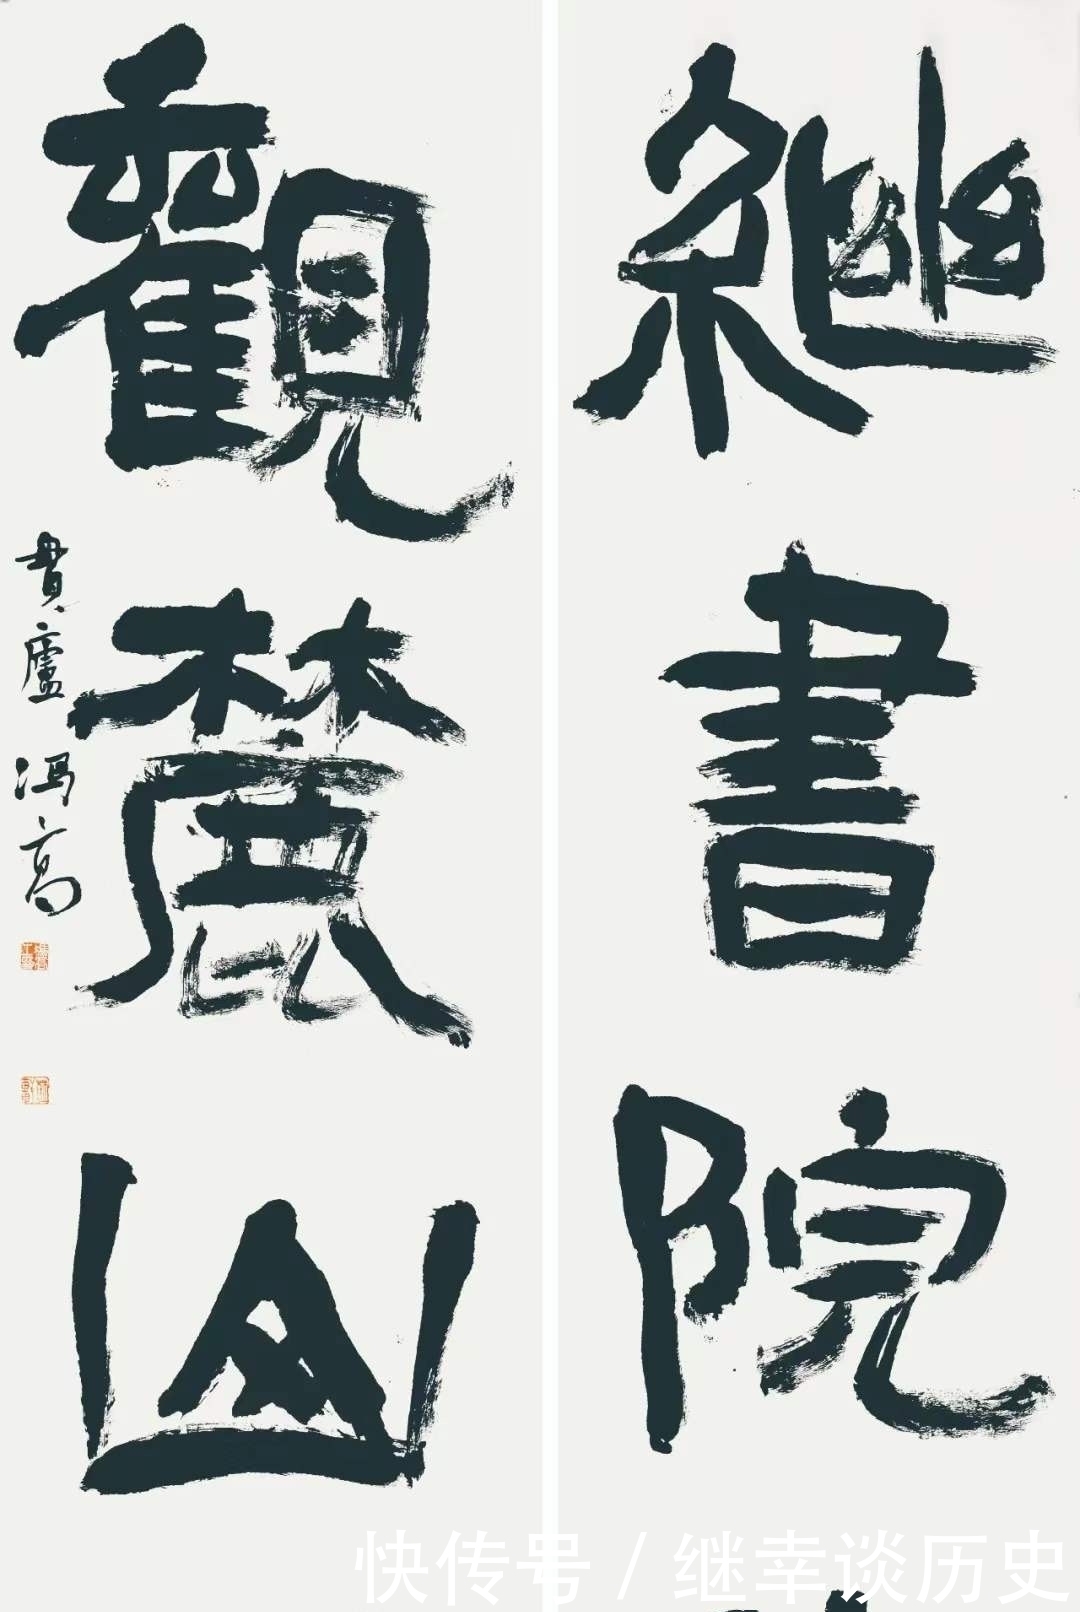 繼書院
觀麓山
貫廬 冯高
快传号 / 继幸谈历史